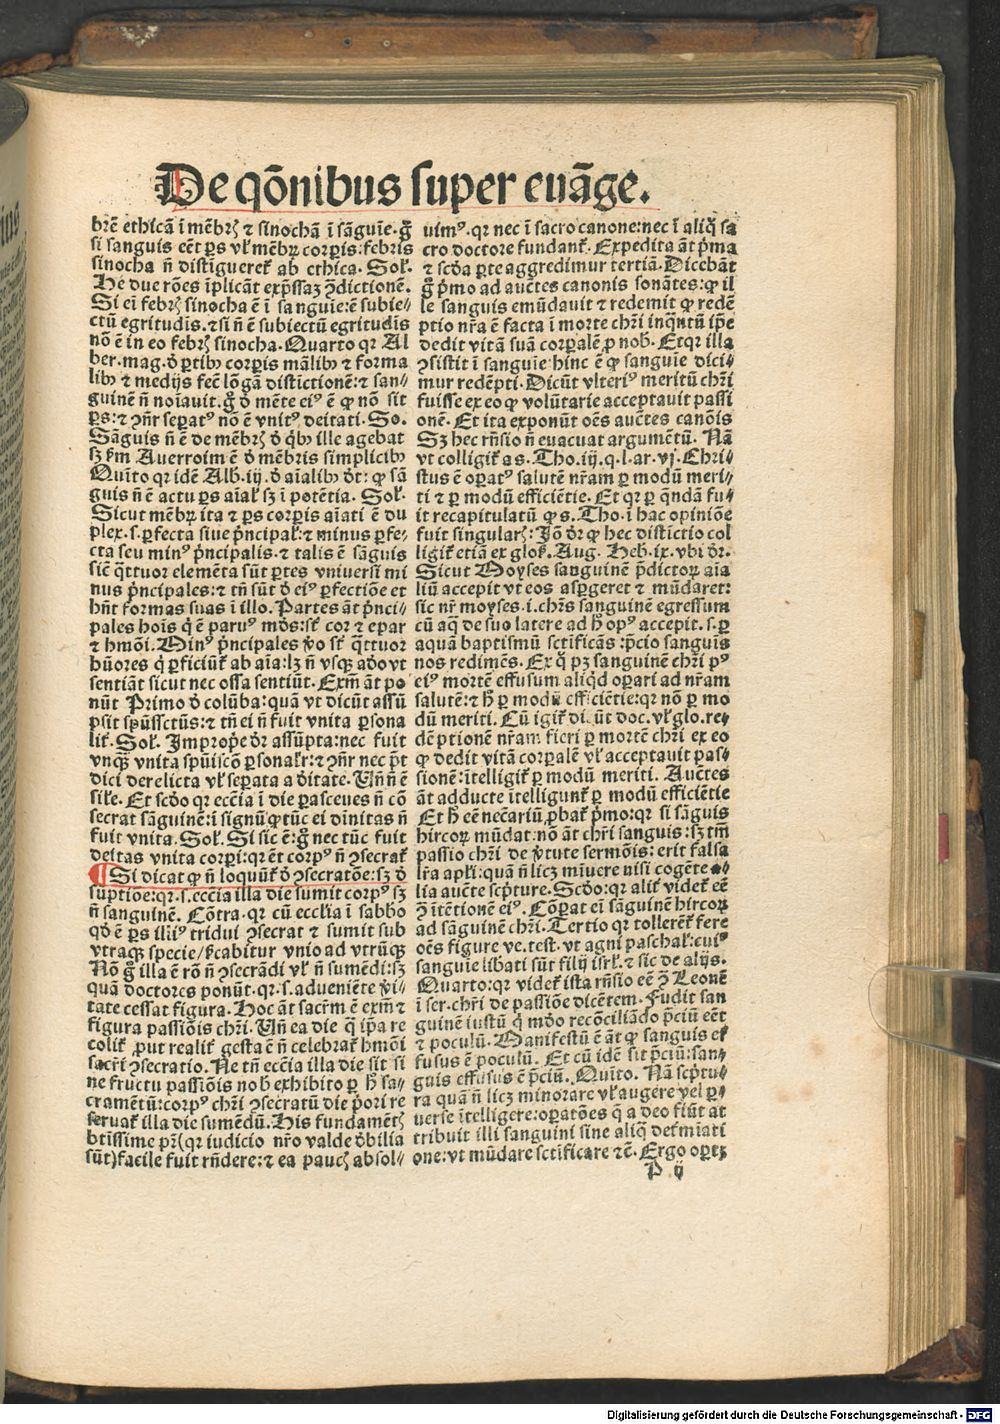 De qōnibus super euāge.
brē ethicā ī mēbrꝫ ⁊ sinochā ī sāguīe. gͦ
si sanguis eēt ꝑs vl̓ mēbꝝ corꝑis: febris
sinocha ñ distīgueret̓ ab ethica. Sol̓.
He due rōes īplicāt exp̄ssaꝫ ↄ̄dictionē.
Si eī febrꝫ sinocha ē ī sanguīe: ē subie-
ctū egritudīs. ⁊ si ñ ē subiectū egritudīs
nō ē in eo febrꝫ sinocha. Quarto qꝛ Al
ber. mag. ꝺ̄ ꝑtibꝰ corꝑis mālibꝰ ⁊ forma
libꝰ ⁊ medijs fec̄ lōgā distīctionē: ⁊ san-
guinē ñ noīauit. gͦ ꝺ̄ mēte eiꝰ ē ꝙ nō sit
ꝑs: ⁊ ↄ̄n̄r seꝑatꝰ nō ē vnitꝰ deitati. So.
Sāguis ñ ē de mēbrꝫ ꝺ̄ qͥbꝰ ille agebat
sꝫ ẜm Auerroim ē ꝺ̄ mēbris simplicibꝰ
Quīto qꝛ idē Alb. iij. ꝺ̄ aīalibꝰ ꝺ̄t: ꝙ sā
guis ñ ē actu ꝑs aīal̓ sꝫ ī potētia. Sol̓.
Sicut mēbꝝ ita ⁊ ꝑs corꝑis aīati ē du
plex. s. ꝑfecta siue pͥncipal̓: ⁊ minus ꝑfe-
cta seu minꝰ pͥncipalis. ⁊ talis ē sāguis
sic̄ qͣttuor elemēta sūt ꝑtes vniuersi mi
nus pͥncipales: ⁊ tñ sūt ꝺ̄ eiꝰ ꝑfectiōe et
hn̄t formas suas ī illo. Partes āt pͥnci-
pales hoīs qͥ ē paruꝰ mōs: st̄ cor ⁊ epar
⁊ hmōi. Minꝰ pͥncipales ꝟo st̄ qͣttuor
hūores qͥ ꝑficiūt̓ ab aīa: lꝫ ñ vsqꝫ adͦ vt
sentiāt sicut nec ossa sentiūt. Exm̄ āt po
nūt Primo ꝺ̄ colūba: quā vt dicūt assū
psit spūssctūs: ⁊ tñ ei ñ fuit vnita ꝑsona
lit̓. Sol̓. Improp̄e ꝺ̄r assūpta: nec fuit
vnqͣꝫ vnita spūiscō ꝑsonalr̄: ⁊ ↄ̄n̄r nec p̄t
dici derelicta vl̓ seꝑata a ꝺ̄itate. Vñ ñ ē
sil̓e. Et scꝺo qꝛ eccīa ī die ꝑasceues ñ cō
secrat sāguinē: ī signū ꝙ tūc ei dīnitas ñ
fuit vnita. Sol̓. Si sic ē: gͦ nec tūc fuit
deitas vnita corꝑi: qꝛ ēt corpꝰ ñ ↄsecrat̓
¶ Si dicat ꝙ ñ loquūt̓ ꝺ̄ ↄsecratōe: sꝫ ꝺ̄
sūptiōe: qꝛ. s. eccīa illa die sumit corpꝰ sꝫ
ñ sanguinē. Cōtra. qꝛ cū ecclīa ī sabb̄o
qͦꝺ ē ꝑs illiꝰ tridui ↄsecrat ⁊ sumit sub
vtraqꝫ specie/ scꝫ abitur vnio ad vtrūqꝫ
Nō gͦ illa ē rō ñ ↄsecrādi vl̓ ñ sumēdi: sꝫ
quā doctores ponūt. qꝛ. s. adueniēte ꝟi-
tate cessat figura. Hoc āt sacrm̄ ē exm̄ ⁊
figura passiōis chr̄i. Vñ ea die qͣ ip̄a re
colit̓ ꝓut realit̓ gesta ē ñ celebrat̓ hmōi
sacr̄i ↄsecratio. Ne tñ eccīa illa die sit si
ne fructu passiōis nob̄ exhibito ꝑ h̄ sa-
cramētū: corpꝰ chr̄i ↄsecratū die pͥori re
seruat̓ illa die sumēdū. His fundamētꝫ
btīssime pr̄ (qꝛ iudicio nr̄o valde ꝺ̄bilia
sūt) facile fuit rn̄dere: ⁊ ea paucꝫ absol-
uimꝰ. qꝛ nec ī sacro canone: nec ī aliqͦ sa
cro doctore fundant̓. Expedita āt pͥma
⁊ scꝺa ꝑte aggredimur tertiā. Dicebāt
gͦ pͥmo ad auc̄tes canonis sonātes: ꝙ il
le sanguis emūdauit ⁊ redemit ꝙ redē
ptio nr̄a ē facta ī morte chr̄i inqͣntū ip̄e
dedit vitā suā corꝑalē ꝓ nob̄. Et qꝛ illa
ↄsistit ī sanguīe hinc ē ꝙ sanguīe dici-
mur redēpti. Dicūt vlteriꝰ meritū chr̄i
fuisse ex eo ꝙ volūtarie acceptauit passi
onē. Et ita exponūt oēs auc̄tes canōis
Sꝫ hec rn̄sio ñ euacuat argumētū. Nā
vt colligit̓ a s. Tho. iij. q. l. ar. vj. Chri-
stus ē oꝑatꝰ salutē nr̄am ꝑ modū meri-
ti ⁊ ꝑ modū efficiētie. Et qꝛ ꝑ qͣndā fu-
it recapitulatū ꝙ s. Tho. ī hac opiniōe
fuit singularꝫ: Iō ꝺ̄r ꝙ hec distīctio col
ligit̓ etiā ex glos̓. Aug. Heb. ix. vbi ꝺ̄r.
Sicut Moyses sanguinē p̄dictoꝝ aīa
liū accepit vt eos asꝑgeret ⁊ mūdaret:
sic nr̄ moyses. i. chr̄s sanguinē egressum
cū aqͣ de suo latere ad h̄ opꝰ accepit. s. ꝑ
aquā baptismū sctificās: p̄cio sanguis
nos redimēs. Ex qͦ pꝫ sanguinē chr̄i pꝰ
eiꝰ mortē effusum aliqͥd oꝑari ad nr̄am
salutē: ⁊ h̄ ꝑ modū efficiētie: qꝛ nō ꝑ mo
dū meriti. Cū igit̓ dicūt doc. vl̓ glo. re-
dēptionē nr̄am fieri ꝑ mortē chr̄i ex eo
ꝙ dedit vitā corꝑalē vl̓ acceptauit pas-
sionē: ītelligit̓ ꝑ modū meriti. Auc̄tes
āt adducte ītelligunt̓ ꝑ modū efficiētie
Et h̄ eē nec̄ariū ꝓbat̓ pͥmo: qꝛ si sāguis
hircoꝝ mūdat: nō āt chr̄i sanguis: sꝫ tm̄
passio chr̄i de ꝟtute sermōis: erit falsa
lr̄a apl̓i: quā ñ licꝫ mīuere nisi cogēte a-
lia auc̄te sc̄pture. Scꝺo: qꝛ alit̓ videt̓ eē
ↄ̄ ītētionē eiꝰ. Cōꝑat eī sāguinē hircoꝝ
ad sāguinē chr̄i. Tertio qꝛ tolleret̓ fere
oēs figure ve. test. vt agni paschal̓: cuiꝰ
sanguīe libati sūt filij isrl̓. ⁊ sic de alijs.
Quarto: qꝛ videt̓ ista rn̄sio eē ↄ̄ Leonē
ī ser. chr̄i de passiōe dicētem. Fudit san
guinē iustū qͥ mꝺo recōciliādo p̄ciū eēt
⁊ poculū. Manifestū ē āt ꝙ sanguis ef
fusus ē poculū. Et cū idē sit p̄ciū: san-
guis effusus ē p̄ciū. Quīto. Nā sc̄ptu-
ra quā ñ licꝫ minorare vl̓ augere vel ꝑ-
uerse ītelligere: oꝑatōes q̄ a deo fiūt at
tribuit illi sanguini sine aliqͣ det̓miati
one: vt mūdare sctificare ⁊c̄. Ergo oꝑtꝫ
P ij
Digitalisierung gefördert durch die Deutsche Forschungsgemeinschaft - DFG